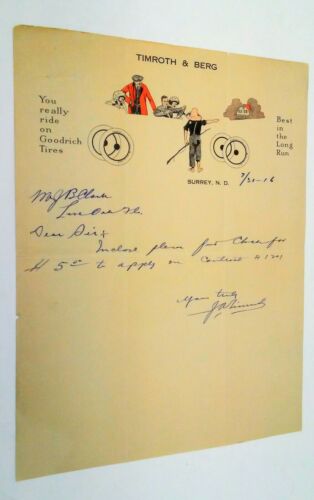 TIMROTH & BERG
You
really
ride
on
Goodrich
Tires
Best
in the
Long
Run
SURREY, N. D. 7/31-16
Mr J B Clark
Live Oak Fla.
Dear Sir
Inclose please find Check for
$ 5.00 to apply on Contract #
Yours truly